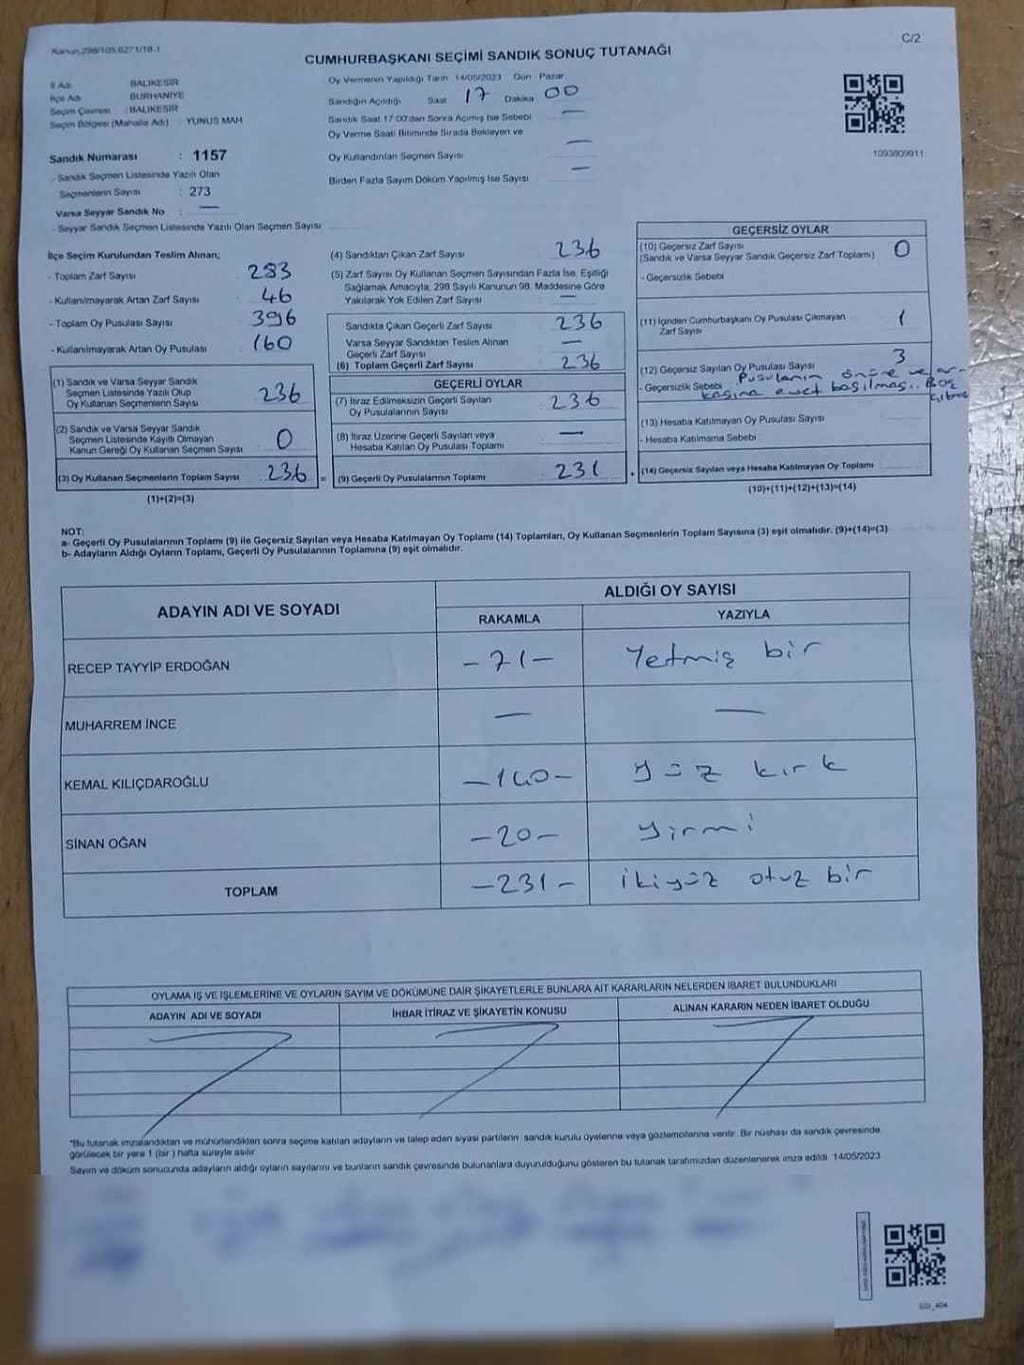 Kanun 298/105 6271/18-1
C/2
CUMHURBAŞKANI SEÇİMİ SANDIK SONUÇ TUTANAĞI
İl Adı : BALIKESİR
İlçe Adı : BURHANİYE
Seçim Çevresi : BALIKESİR
Seçim Bölgesi (Mahalle Adı) : YUNUS MAH
Oy Vermenin Yapıldığı Tarih 14/05/2023 Gün Pazar
Sandığın Açıldığı Saat 17 Dakika 00
Sandık Saat 17.00'dan Sonra Açılmış İse Sebebi —
Oy Verme Saati Bitiminde Sırada Bekleyen ve
Oy Kullandırılan Seçmen Sayısı —
Birden Fazla Sayım Döküm Yapılmış İse Sayısı —
1093809911
Sandık Numarası : 1157
- Sandık Seçmen Listesinde Yazılı Olan
Seçmenlerin Sayısı : 273
Varsa Seyyar Sandık No : —
- Seyyar Sandık Seçmen Listesinde Yazılı Olan Seçmen Sayısı
İlçe Seçim Kurulundan Teslim Alınan;
- Toplam Zarf Sayısı : 283
- Kullanılmayarak Artan Zarf Sayısı : 46
- Toplam Oy Pusulası Sayısı : 396
- Kullanılmayarak Artan Oy Pusulası : 160
(1) Sandık ve Varsa Seyyar Sandık
Seçmen Listesinde Yazılı Olup
Oy Kullanan Seçmenlerin Sayısı : 236
(2) Sandık ve Varsa Seyyar Sandık
Seçmen Listesinde Kayıtlı Olmayan
Kanun Gereği Oy Kullanan Seçmen Sayısı : 0
(3) Oy Kullanan Seçmenlerin Toplam Sayısı : 236 =
(1)+(2)=(3)
(4) Sandıktan Çıkan Zarf Sayısı : 236
(5) Zarf Sayısı Oy Kullanan Seçmen Sayısından Fazla İse, Eşitliği
Sağlamak Amacıyla; 298 Sayılı Kanunun 98. Maddesine Göre
Yakılarak Yok Edilen Zarf Sayısı : —
Sandıkta Çıkan Geçerli Zarf Sayısı : 236
Varsa Seyyar Sandıktan Teslim Alınan
Geçerli Zarf Sayısı : —
(6) Toplam Geçerli Zarf Sayısı : 236
GEÇERLİ OYLAR
(7) İtiraz Edilmeksizin Geçerli Sayılan
Oy Pusulalarının Sayısı : 236
(8) İtiraz Üzerine Geçerli Sayılan veya
Hesaba Katılan Oy Pusulası Toplamı : —
(9) Geçerli Oy Pusulalarının Toplamı : 231 +
GEÇERSİZ OYLAR
(10) Geçersiz Zarf Sayısı
(Sandık ve Varsa Seyyar Sandık Geçersiz Zarf Toplamı) : 0
- Geçersizlik Sebebi
(11) İçinden Cumhurbaşkanı Oy Pusulası Çıkmayan
Zarf Sayısı : 1
(12) Geçersiz Sayılan Oy Pusulası Sayısı 3
- Geçersizlik Sebebi Pusulanın önüne ve ar-
kasına evet basılması. Boş
(13) Hesaba Katılmayan Oy Pusulası Sayısı
- Hesaba Katılmama Sebebi
(14) Geçersiz Sayılan veya Hesaba Katılmayan Oy Toplamı
(10)+(11)+(12)+(13)=(14)
NOT:
a- Geçerli Oy Pusulalarının Toplamı (9) ile Geçersiz Sayılan veya Hesaba Katılmayan Oy Toplamı (14) Toplamları, Oy Kullanan Seçmenlerin Toplam Sayısına (3) eşit olmalıdır. (9)+(14)=(3)
b- Adayların Aldığı Oyların Toplamı, Geçerli Oy Pusulalarının Toplamına (9) eşit olmalıdır.
ADAYIN ADI VE SOYADI
ALDIĞI OY SAYISI
RAKAMLA YAZIYLA
RECEP TAYYİP ERDOĞAN -71- Yetmiş bir
MUHARREM İNCE — —
KEMAL KILIÇDAROĞLU -140- yüz kırk
SİNAN OĞAN -20- yirmi
TOPLAM -231- ikiyüz otuz bir
OYLAMA İŞ VE İŞLEMLERİNE VE OYLARIN SAYIM VE DÖKÜMÜNE DAİR ŞİKAYETLERLE BUNLARA AİT KARARLARIN NELERDEN İBARET BULUNDUKLARI
ADAYIN ADI VE SOYADI İHBAR İTİRAZ VE ŞİKAYETİN KONUSU ALINAN KARARIN NEDEN İBARET OLDUĞU
*Bu tutanak imzalandıktan ve mühürlendikten sonra seçime katılan adayların ve talep eden siyasi partilerin sandık kurulu üyelerine veya gözlemcilerine verilir. Bir nüshası da sandık çevresinde
görülecek bir yere 1 (bir) hafta süreyle asılır.
Sayım ve döküm sonucunda adayların aldığı oyların sayılarını ve bunların sandık çevresinde bulunanlara duyurulduğunu gösteren bu tutanak tarafımızdan düzenlenerek imza edildi. 14/05/2023